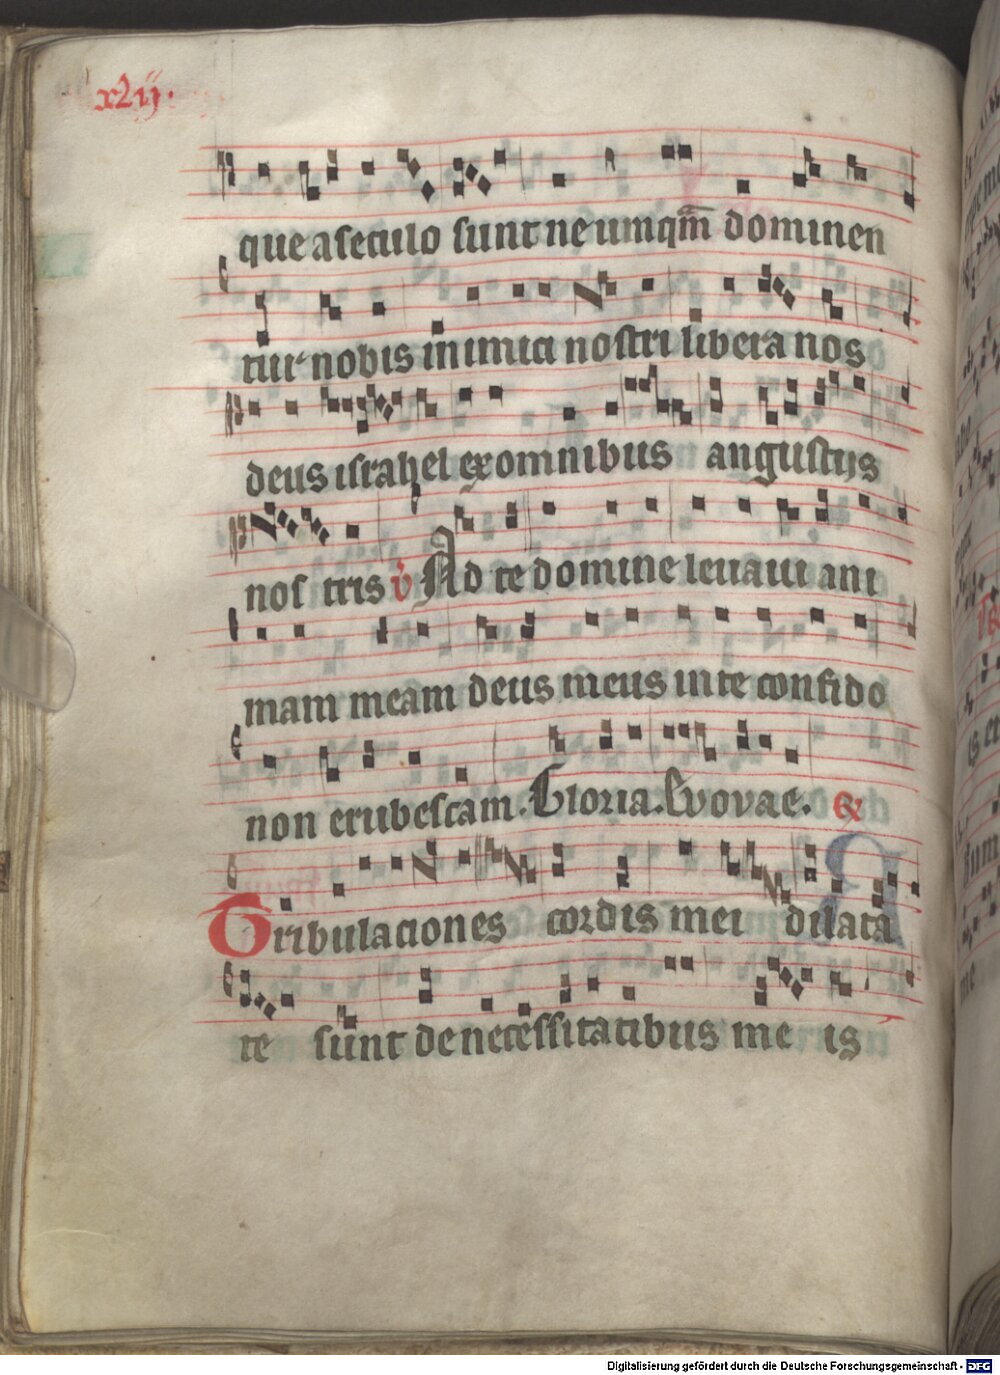 xlij.
que a seculo sunt ne umqm̄ dominen
tur nobis inimici nostri libera nos
deus israhel ex omnibus angustijs
nos tris v̊ Ad te domine leuaui ani
mam meam deus meus in te confido
non erubescam. Gloria. Evovae. G
Tribulaciones cordis mei dilata
te sunt de necessitatibus me is
Digitalisierung gefördert durch die Deutsche Forschungsgemeinschaft - DFG